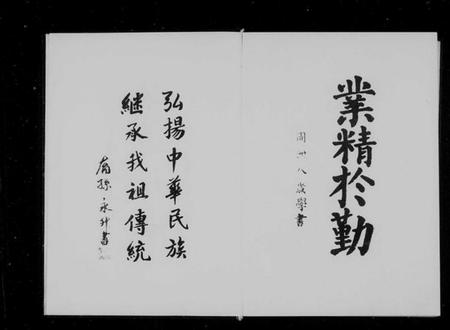 業精於勤
八歲學書
弘揚中華民族
繼承我祖傳統
裔孫永升書